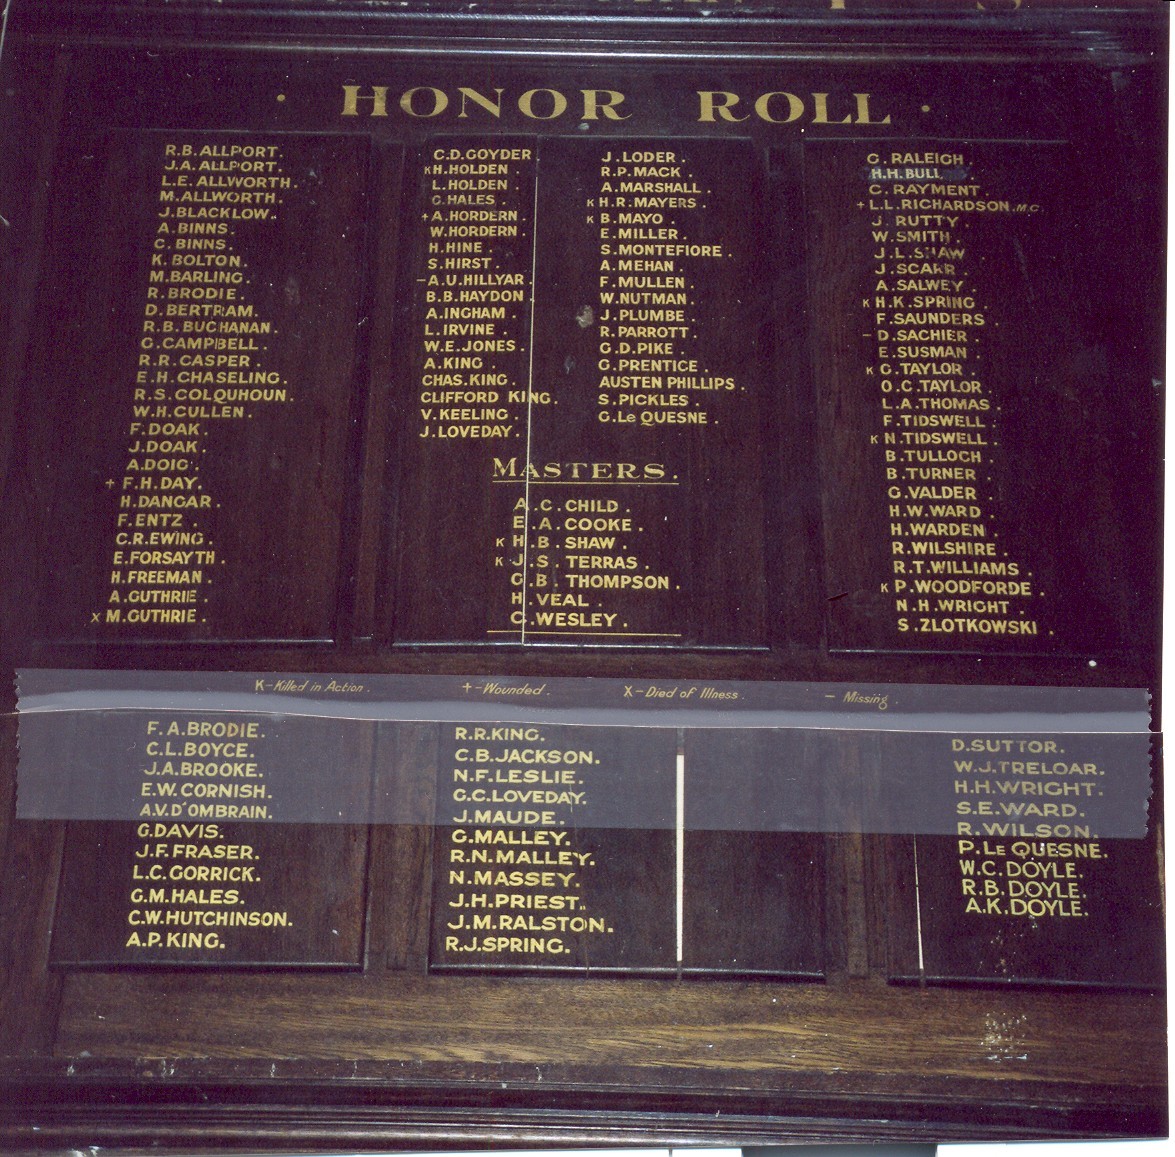 · HONOR ROLL ·
R.B.ALLPORT.
J.A.ALLPORT.
L.E.ALLWORTH.
M.ALLWORTH.
J.BLACKLOW.
A.BINNS.
C.BINNS.
K.BOLTON.
M.BARLING.
R.BRODIE.
D.BERTRAM.
R.B.BUCHANAN.
G.CAMPBELL.
R.R.CASPER.
E.H.CHASELING.
R.S.COLQUHOUN.
W.H.CULLEN.
F.DOAK.
J.DOAK.
A.DOIG.
+ F.H.DAY.
H.DANGAR.
F.ENTZ.
C.R.EWING.
E.FORSAYTH.
H.FREEMAN.
A.GUTHRIE.
X M.GUTHRIE.
C.D.GOYDER.
K H.HOLDEN.
L.HOLDEN.
G.HALES.
+ A.HORDERN.
W.HORDERN.
H.HINE.
S.HIRST.
- A.U.HILLYAR.
B.B.HAYDON.
A.INGHAM.
L.IRVINE.
W.E.JONES.
A.KING.
CHAS.KING.
CLIFFORD KING.
V.KEELING.
J.LOVEDAY.
J.LODER.
R.P.MACK.
A.MARSHALL.
K H.R.MAYERS.
K B.MAYO.
E.MILLER.
S.MONTEFIORE.
A.MEHAN.
F.MULLEN.
W.NUTMAN.
J.PLUMBE.
R.PARROTT.
G.D.PIKE.
G.PRENTICE.
AUSTEN PHILLIPS.
S.PICKLES.
G.Le QUESNE.
MASTERS.
A.C.CHILD.
E.A.COOKE.
K H.B.SHAW.
K J.S.TERRAS.
G.B.THOMPSON.
H.VEAL.
C.WESLEY.
G.RALEIGH.
H.H.BULL
C.RAYMENT.
+ L.L.RICHARDSON.M.C.
J.RUTTY.
W.SMITH.
J.L.SHAW.
J.SCARR.
A.SALWEY.
K H.K.SPRING.
F.SAUNDERS.
- D.SACHIER.
E.SUSMAN.
K G.TAYLOR.
O.C.TAYLOR.
L.A.THOMAS.
F.TIDSWELL.
K N.TIDSWELL.
B.TULLOCH.
B.TURNER.
G.VALDER.
H.W.WARD.
H.WARDEN.
R.WILSHIRE.
R.T.WILLIAMS.
K P.WOODFORDE.
N.H.WRIGHT.
S.ZLOTKOWSKI.
K-Killed in Action. +-Wounded. X-Died of Illness. - Missing.
F.A.BRODIE.
C.L.BOYCE.
J.A.BROOKE.
E.W.CORNISH.
A.V.D'OMBRAIN.
G.DAVIS.
J.F.FRASER.
L.C.GORRICK.
G.M.HALES.
C.W.HUTCHINSON.
A.P.KING.
R.R.KING.
C.B.JACKSON.
N.F.LESLIE.
G.C.LOVEDAY.
J.MAUDE.
G.MALLEY.
R.N.MALLEY.
N.MASSEY.
J.H.PRIEST.
J.M.RALSTON.
R.J.SPRING.
D.SUTTOR.
W.J.TRELOAR.
H.H.WRIGHT.
S.E.WARD.
R.WILSON.
P.Le QUESNE.
W.C.DOYLE.
R.B.DOYLE.
A.K.DOYLE.